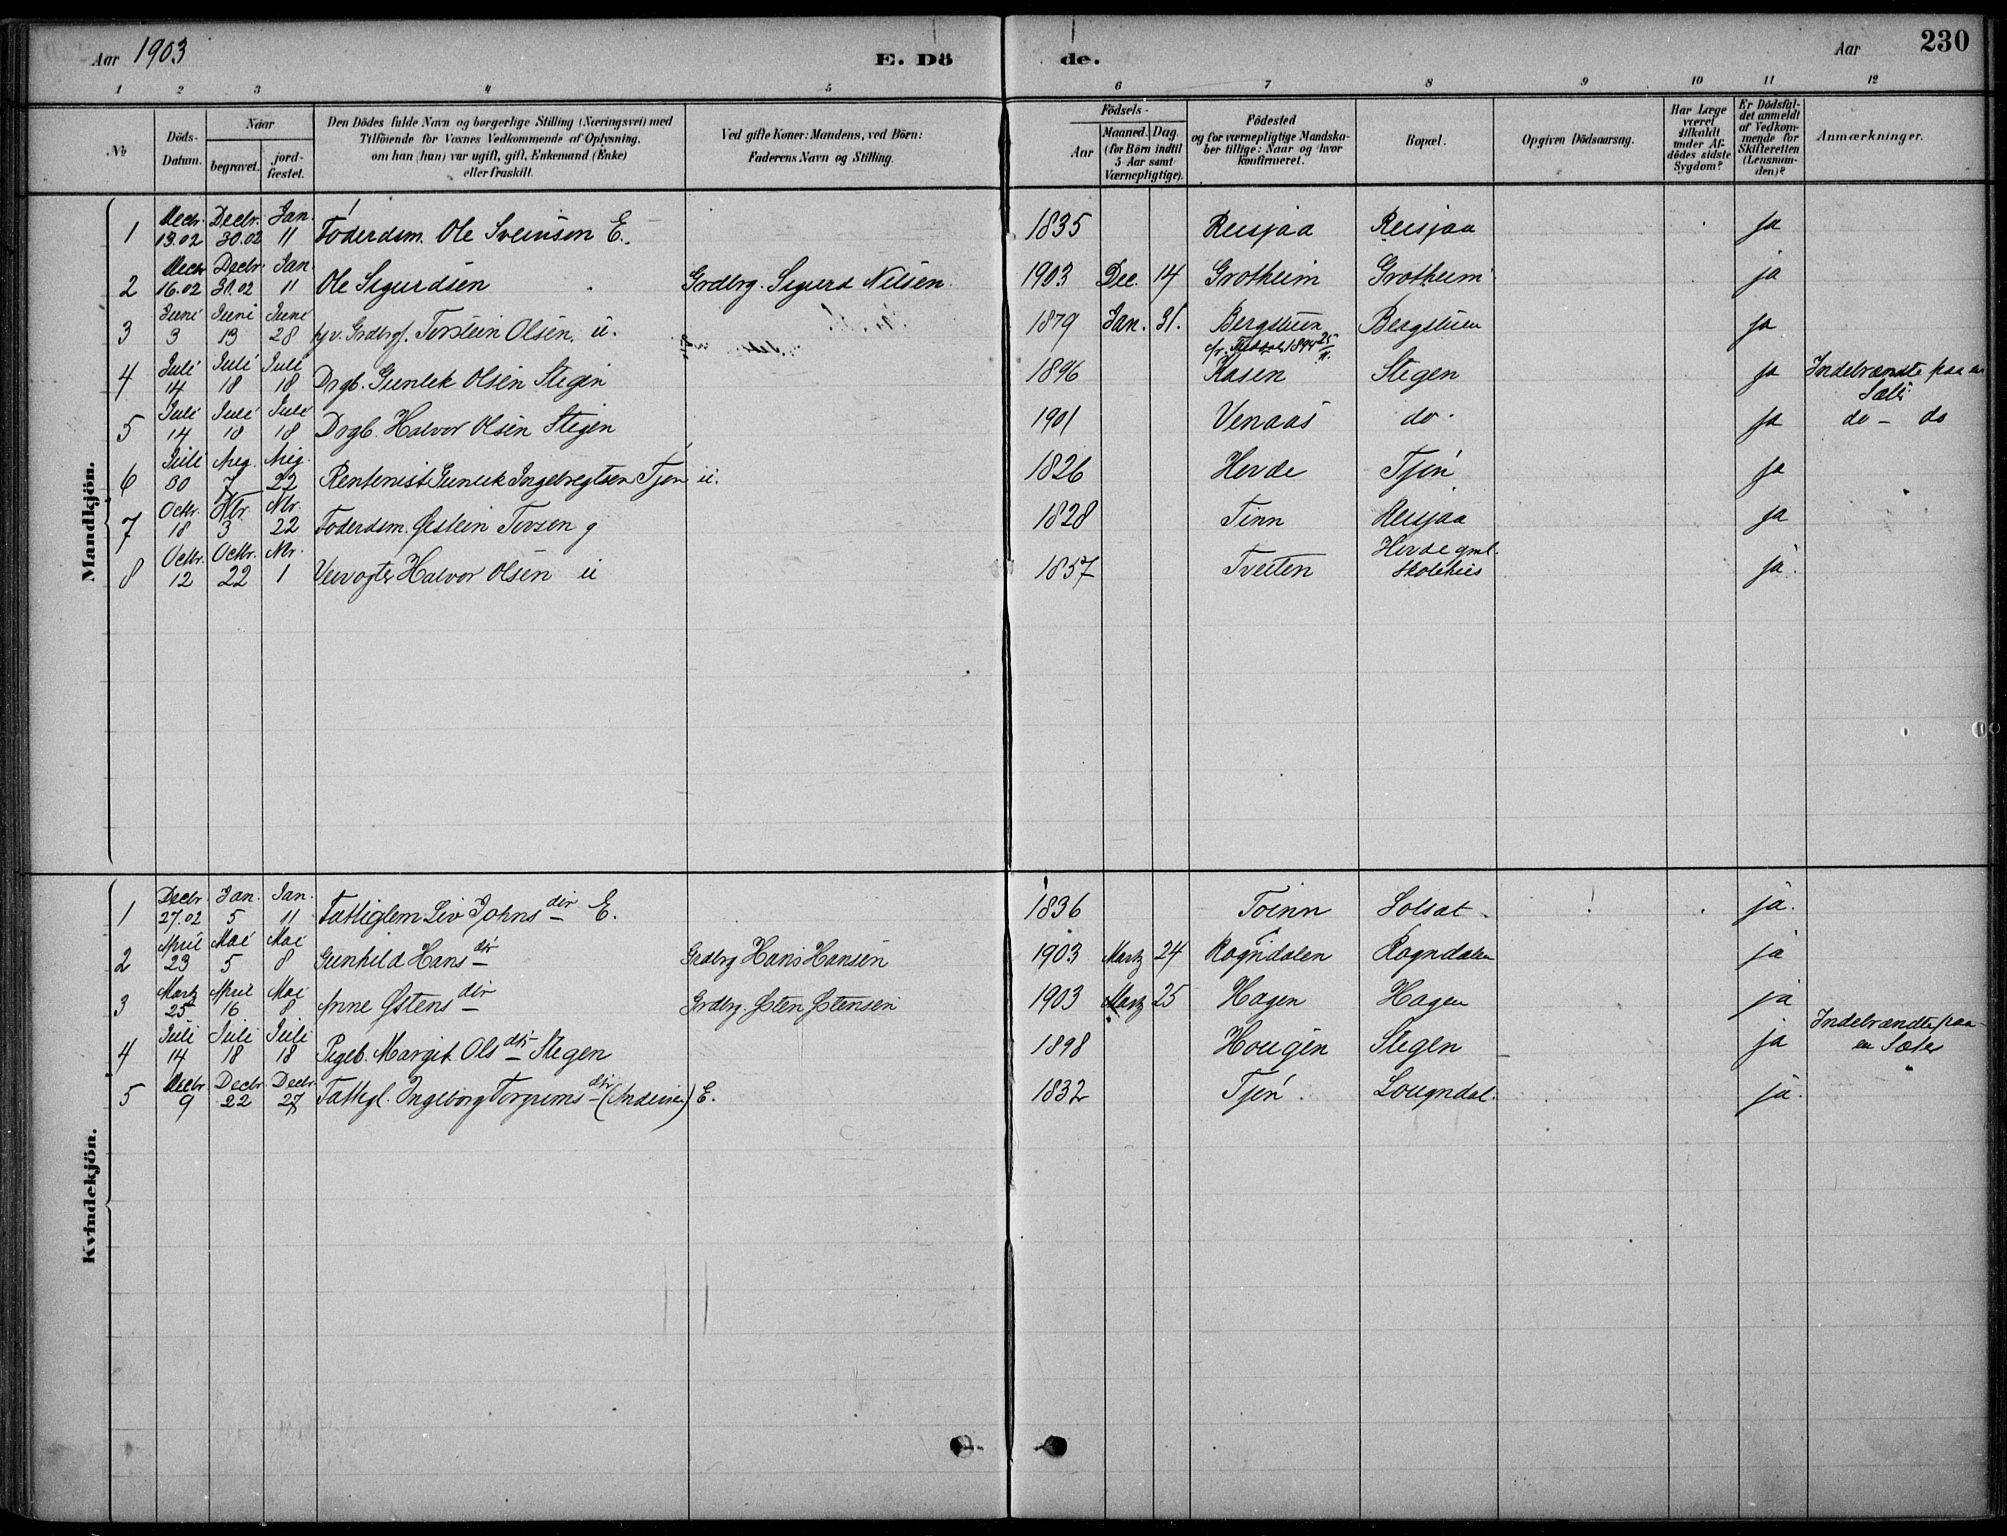 Aar 1903
E. Döde.
Aar
230
1 2 3 4 5 6 7 8 9 10 11 12
№
Döds-Datum.
Naar
begravet.
jordfæstet.
Den Dödes fulde Navn og borgerlige Stilling (Næringsvei) med
Tilföiende for Voxnes Vedkommende af Oplysning,
om han (hun) var ugift, gift, Enkemand (Enke)
eller fraskilt.
Ved gifte Koner: Mandens, ved Börn:
Faderens Navn og Stilling.
Födsels-
Aar
Maaned. Dag.
(for Börn indtil
5 Aar samt
Værnepligtige).
Födested
og for værnepligtige Mandska-
ber tillige: Naar og hvor
konfirmeret.
Bopæl.
Opgiven Dödsaarsag.
Har Læge
været
tilkaldt
under Af-
dödes sidste
Sygdom?
Er Dödsfal-
det anmeldt
af Vedkom-
mende for
Skifteretten
(Lensman-
den)?
Anmærkninger.
Mandkjön.
1 Decbr. 13.02 Decbr. 30.02 Jan. 11 Foderdsm. Ole Sveinsen E. 1835 Reisjaa Reisjaa ja
2 Decbr 16.02 Decbr. 31.02 Jan. 11 Ole Sigurdsen Grdbrg. Sigurd Nilsen. 1903 Dec. 14 Grotheim Grotheim ja
3 Juni 3 Juni 13 Juni 28 Torstein Olsen. u. 1879 Jan. 31. Bergstuen Bergstuen ja
4 Juli 14 Juli 18 Juli 18 Drgb. Gunlek Olsen Stegen 1896 Kasen Stegen ja Indebrændte paa en Sæter
5 Juli 14 Juli 18 Juli 18 Drgb. Halvor Olsen Stegen 1901 Venaas do. ja do - do
6 Juli 30 Aug. 7 Aug. 22 Rentenist Gunlek Ingebregtsen Tjøn u. 1826 Herde Tjøn ja
7 Octbr. 18 Nbr. 3 Nbr. 22 Foderdsm. Østein Torsen g 1828 Tinn Reisjaa ja
8 Octbr. 12 Octbr. 22 Nbr. 1 Veivogter Halvor Olsen u 1857 Tveiten Herde gml. Skolehus ja.
Kvindekjön.
1 Decbr 27.02 Jan. 5 Jan. 11 Fattiglem Liv Johnsdtr E. 1836 Toinn Solsat ja.
2 April 23 Mai 5 Mai 8 Gunhild Hansdtr Grdbrg Hans Hansen 1903 Martz 24 Rogndalen Rogndalen ja
3 Martz 25 April 16 Mai 8 Anne Østensdtr Grdbrg. Østen Østensen 1903 Martz 25 Hagen Hagen ja
4 Juli 14 Juli 18 Juli 18 Pigeb. Margit Olsdtr Stegen 1898 Hougen Stegen ja Indebrændte paa en Sæter
5 Decbr 9 Decbr 22 Decbr. 27 Fattigl. Ingeborg Torgrimsdtr E. 1832 Tjøn. Lougndal. ja.